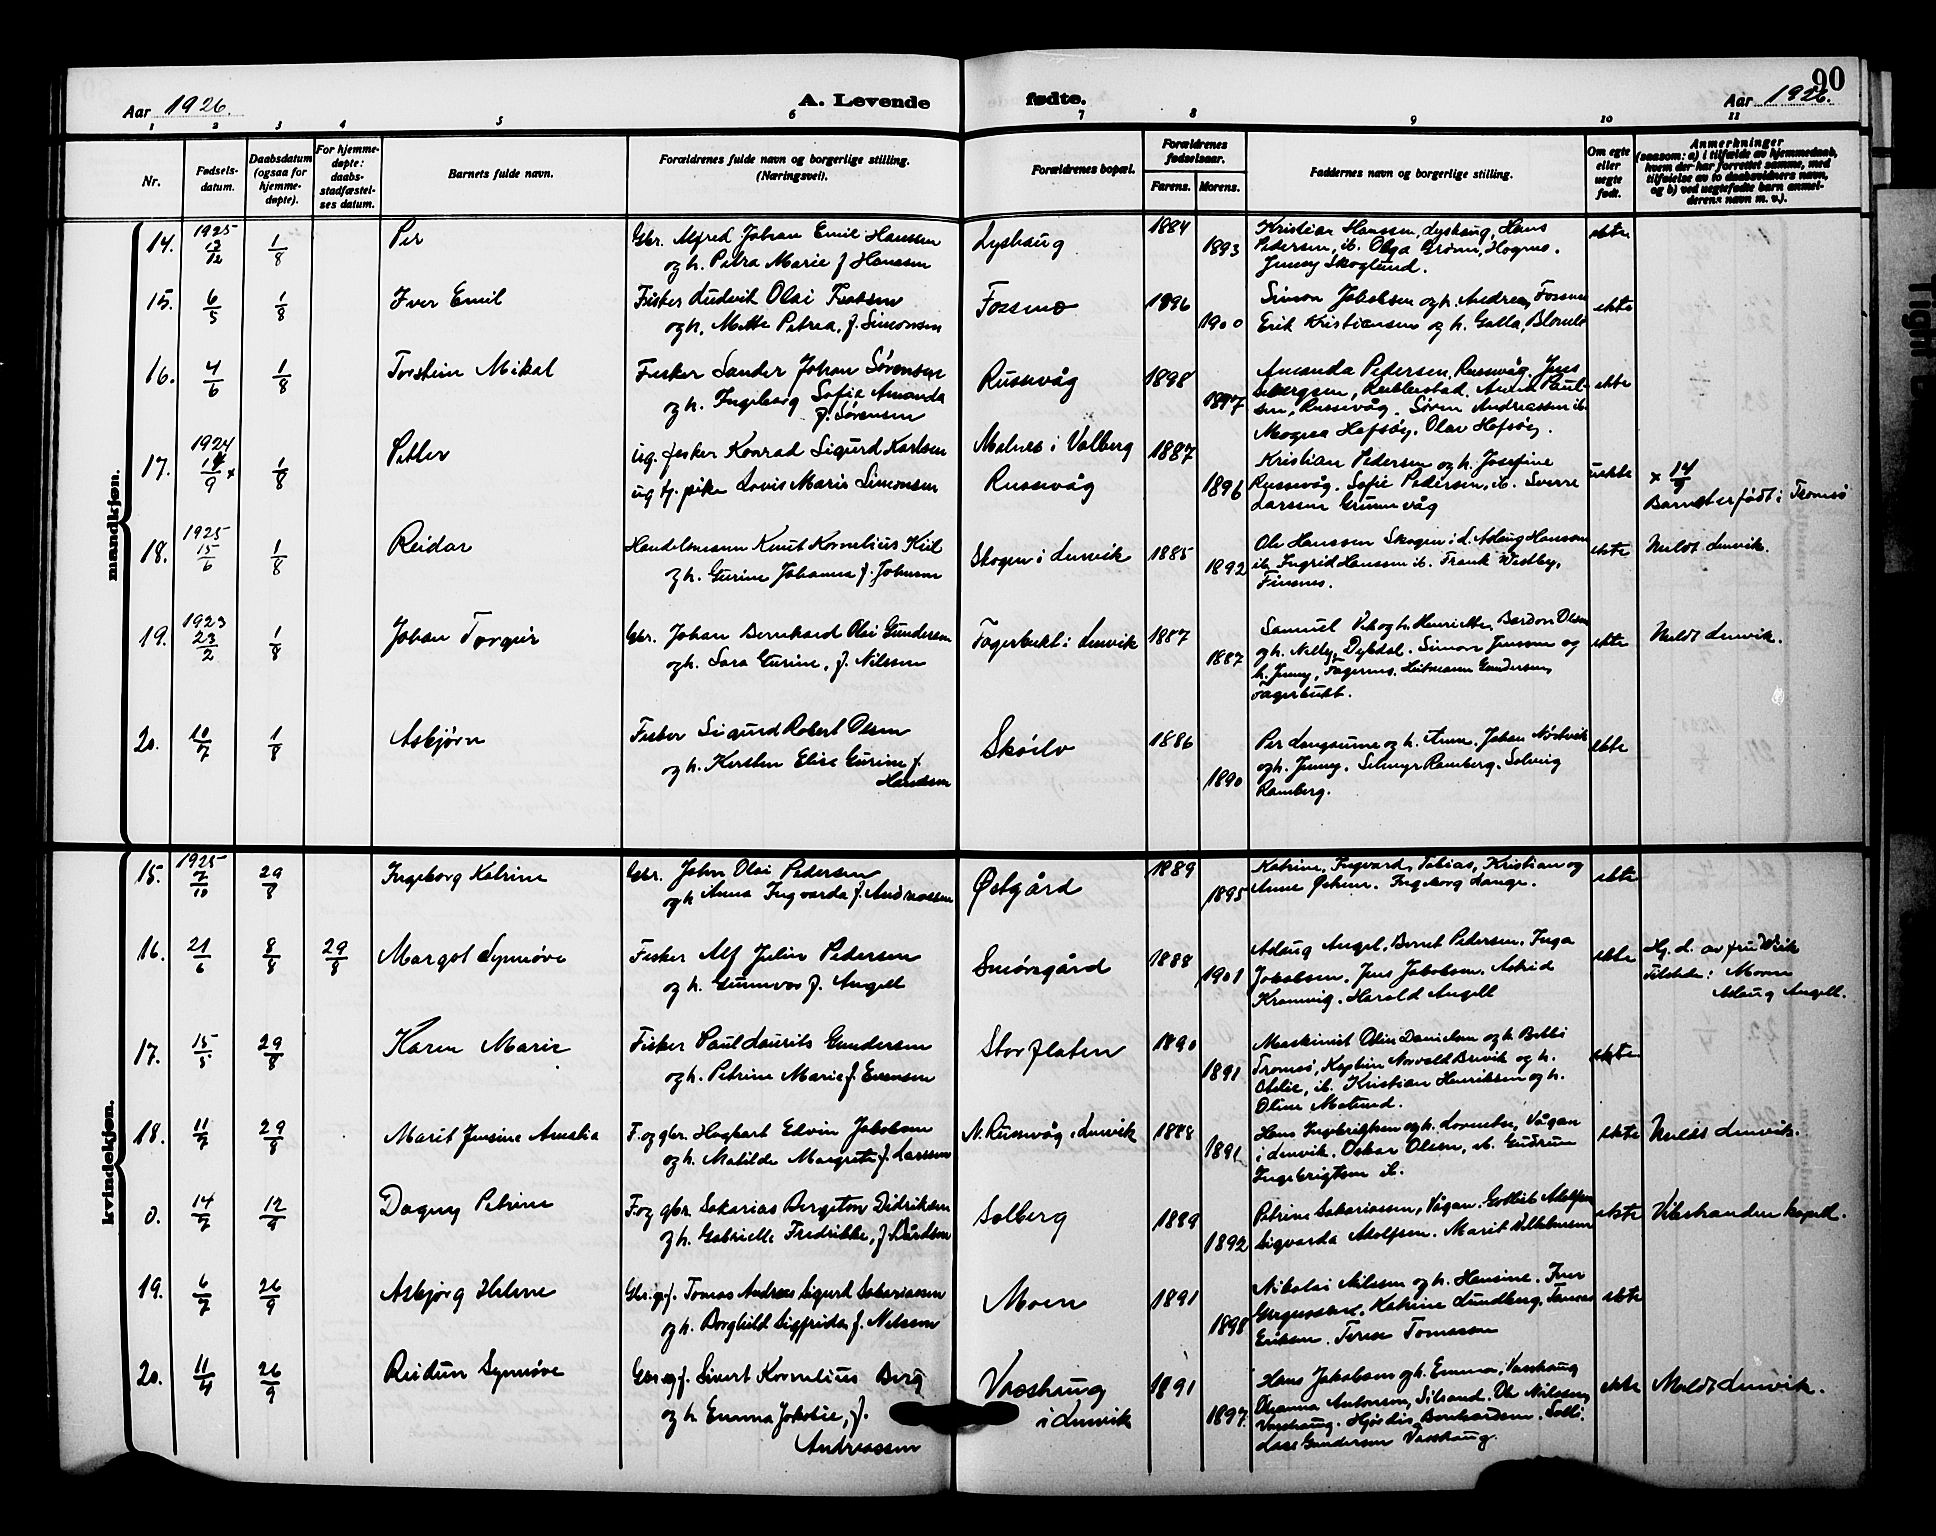 Aar 1926.
A. Levende fødte.
Aar 1926.
90
1 2 3 4 5 6 7 8 9 10 11
Nr.
Fødsels-
datum.
Daabsdatum
(ogsaa for
hjemme-
døpte).
For hjemme-
døpte:
daabs-
stadfæstel-
ses datum.
Barnets fulde navn.
Forældrenes fulde navn og borgerlige stilling.
(Næringsvei).
Forældrenes bopæl.
Forældrenes
fødselsaar.
Farens. Morens.
Faddernes navn og borgerlige stilling.
Om egte
eller
uegte
født.
Anmerkninger
(saasom: a) i tilfælde av hjemmedaab,
hvem der har forrettet samme, med
tilføielse av to daabsvidners navn,
og b) ved uegtefødte barn anmel-
derens navn m. v.).
mandkjøn.
14. 1925 12/12 1/8 Per
Gbr. Alfred Johan Emil Hanssen
og h. Petra Marie f. Hanssen
Lyshaug 1884 1893
Kristian Hanssen, Lyshaug, Hans
Pedersen, ib. Olga Grønn, Hognes.
Jenny Skoglund.
ekte
15. 6/5 1/8 Iver Emil
Fisker Ludvik Olai
og h. Mette Petrea, f. Simonsen
Fossmo 1896 1900
Simon Jakobsen og h. Andrea, Fossmo
Erik Kristiansen og h. Galla,
ekte
16. 4/6 1/8 Torstein Mikal
Fisker Sander Johan Sørensen
og h. Ingeborg Sofie Amanda
f. Sørensen
Russevåg 1898 1897
Amanda Pedersen, Russevåg. Jens
Paul-
sen, Russevåg. Søren Andreassen ib.
Magna Hofsøy, Olav Hofsøy.
ekte
17. 1924 14/9 x 1/8 Petter
ug. fisker Konrad Sigurd Karlsen
ug tj. pike Lovis Marie Simonsen
Malnes i Valberg
Russevåg
1887 1896
Kristian Pedersen og h. Josefine
Russevåg. Sofie Pedersen, ib. Sverre
Larssen Grunnvåg
uekte
x 14/9
Barnet er født i Tromsø
18. 1925 15/6 1/8 Reidar
Handelsmann Knut Kornelius Kiil
og h. Gurine Johanna f. Johnsen
Skogen i Lenvik 1885 1892
Ole Hanssen Skogen i L. Aslaug Hanssen
ib. Ingrid Hanssen ib. Frank Westby,
Finsnes.
ekte
Meldt Lenvik.
19. 1923 23/2 1/8 Johan Torgeir
Gbr. Johan Bernhard Olai Gundersen
og h. Sara Gurine, f. Nilssen
Fagerbukt i Lenvik 1887 1887
Samuel og h. Henriette, Bardon Olsen
og h. Nelly, Dybdal. Simon Jenssen og
h. Jenny, Fagernes. Gundersen,
Fagerbukt.
ekte
Meldt Lenvik.
20. 10/7 1/8 Asbjørn
Fisker Sigurd Robert Olsen
og h. Kirsten Elise Gurine f.
Hanssen
Skóelv 1886 1890
Per Langaune og h. Anna. Johan Nøstvik
og h. Jenny. Selmyr Ramberg. Solveig
Ramberg.
ekte
kvindekjøn.
15. 1925 7/10 29/8 Ingeborg Katrine
Gbr. John Olai Pedersen
og h Anna Ingvarda f. Andreassen
Østgård 1889 1895
Katrine, Ingvard, Tobias, Kristian og
Anne Østrem. Ingeborg Lange.
ekte
16. 21/6 8/8 29/8 Margot Synnøve
Fisker Alf Julin Pedersen
og h. Gunnvor f. Angell
Smørsgård 1888 1901
Aslaug Angel, Bernt Pedersen. Inga
Jakobsen. Jens Jakobsen. Astrid
Kramvig. Harald Angell
ekte
Hj. d. av fru Wiik
Tilstede: Moren
Aslaug Angell.
17. 15/5 29/8 Karen Marie
Fisker Paul Laurits Gundersen
og h. Petrine Marie f. Evensen
Storflaten 1890 1891
Maskinist Odin Danielsen og h.
Tromsø, Kaptein Norvald Brevik og h.
Otelie, ib. Kristian Henriksen og h.
Oline
ekte
18. 11/7 29/8 Marit Jensine Amalia
F. og gbr. Hagbart Edvin Jakobsen
og h. Matilde Margrete f. Larssen
N. Russevåg i Lenvik 1888 1891
Hans Ingebrigtsen og h. Lorentse, Vågan
i Lenvik. Oskar Olsen, ib. Gudrun
Ingebrigtsen ib.
ekte
Meldt Lenvik.
0. 14/7 12/9 Dagny Petrine
F. og gbr. Sakarias Bergeton Didriksen
og h. Gabrielle Fredrikke, f. Bårdsen
Solberg 1889 1892
Petrine Sakariassen, Vågan. Gotlieb Adolfsen
Sigvarda Adolfsen. Marit Vilhelmsen
ekte
Vibstranden kapell.
19. 6/7 26/9 Asbjørg Helene
Gbr. og f. Tomas Andreas Sigurd Sakariassen
og h. Borghild Sigfrida f. Nilssen
Moen 1891 1898
Nikolai Nilssen og h. Hansine. Iver
Katrine Lundberg,
Eriksen. Terese Tomassen
ekte
20. 11/4 26/9 Reidun Synnøve
Gbr. og f. Sivert Kornelius Berg
og h Emma Jokobie, f.
Andreassen
Vasshaug
i Lenvik
1891 1897.
Hans Jakobsen og h. Emma, Vasshaug
Antonsen, Silsand. Ole Nilssen,
Vasshaug. Hjørdis
Gundersen Vasshaug.
ekte
Meldt Lenvik.
Tight